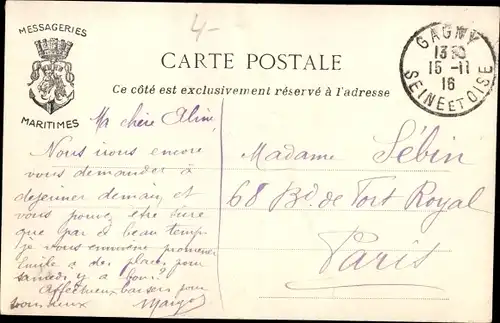 4-
MESSAGERIES
MARITIMES
CARTE POSTALE
Ce côté est exclusivement réservé à l'adresse
GAGNY
13 30
15 -11
16
SEINE ET OISE
Ma chère Aline,
Nous irons encore
vous demander à
dejeuner demain et
vous pouvez être sure
que par ce beau temps
je vous emmène promener
Emile a des places pour
samedi y a bon?
Affectueux baisers pour
vous deux Margot
Madame Sébin
68 Bd. de Port Royal
Paris